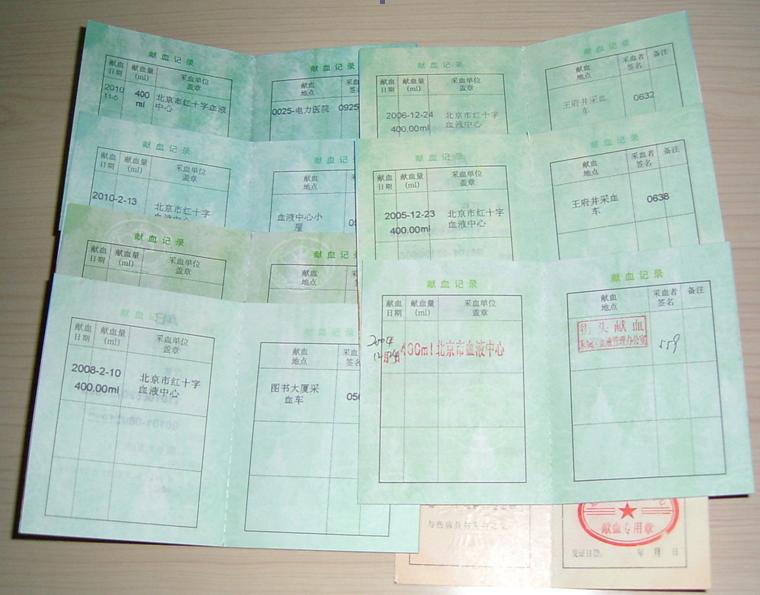 献血记录
献血 献血量 采血单位
日期 (ml) 盖章
2010 400 北京市红十字血液
11-5 ml 中心
献血记录
献血
地点
0025-电力医院 0925
献血记录
献血 献血量 采血单位
日期 (ml) 盖章
2010-2-13 北京市红十字
献血记录
献血
地点
血液中心小
屋
献血记录
献血 献血量 采血单位
日期 (ml) 盖章
献血记录
献血
地点
献血记录
献血 献血量 采血单位
日期 (ml) 盖章
2008-2-10 北京市红十字
400.00ml 血液中心
献血记录
献血
地点 签名
图书大厦采
血车
献血记录
献血 献血量 采血单位
日期 (ml) 盖章
2006-12-24 北京市红十字
400.00ml 血液中心
献血 采血者 备注
地点 签名
王府井采血 0632
车
献血记录
献血 献血量 采血单位
日期 (ml) 盖章
2005-12-23 北京市红十字
400.00ml 血液中心
献血记录
献血 采血者 备注
地点 签名
王府井采血 0638
车
献血记录
献血 献血量 采血单位
日期 (ml) 盖章
2004
400ml 北京市血液中心
献血记录
献血 采血者 备注
地点 签名
街头献血
559
献血专用章
发证日期: 年 月 日